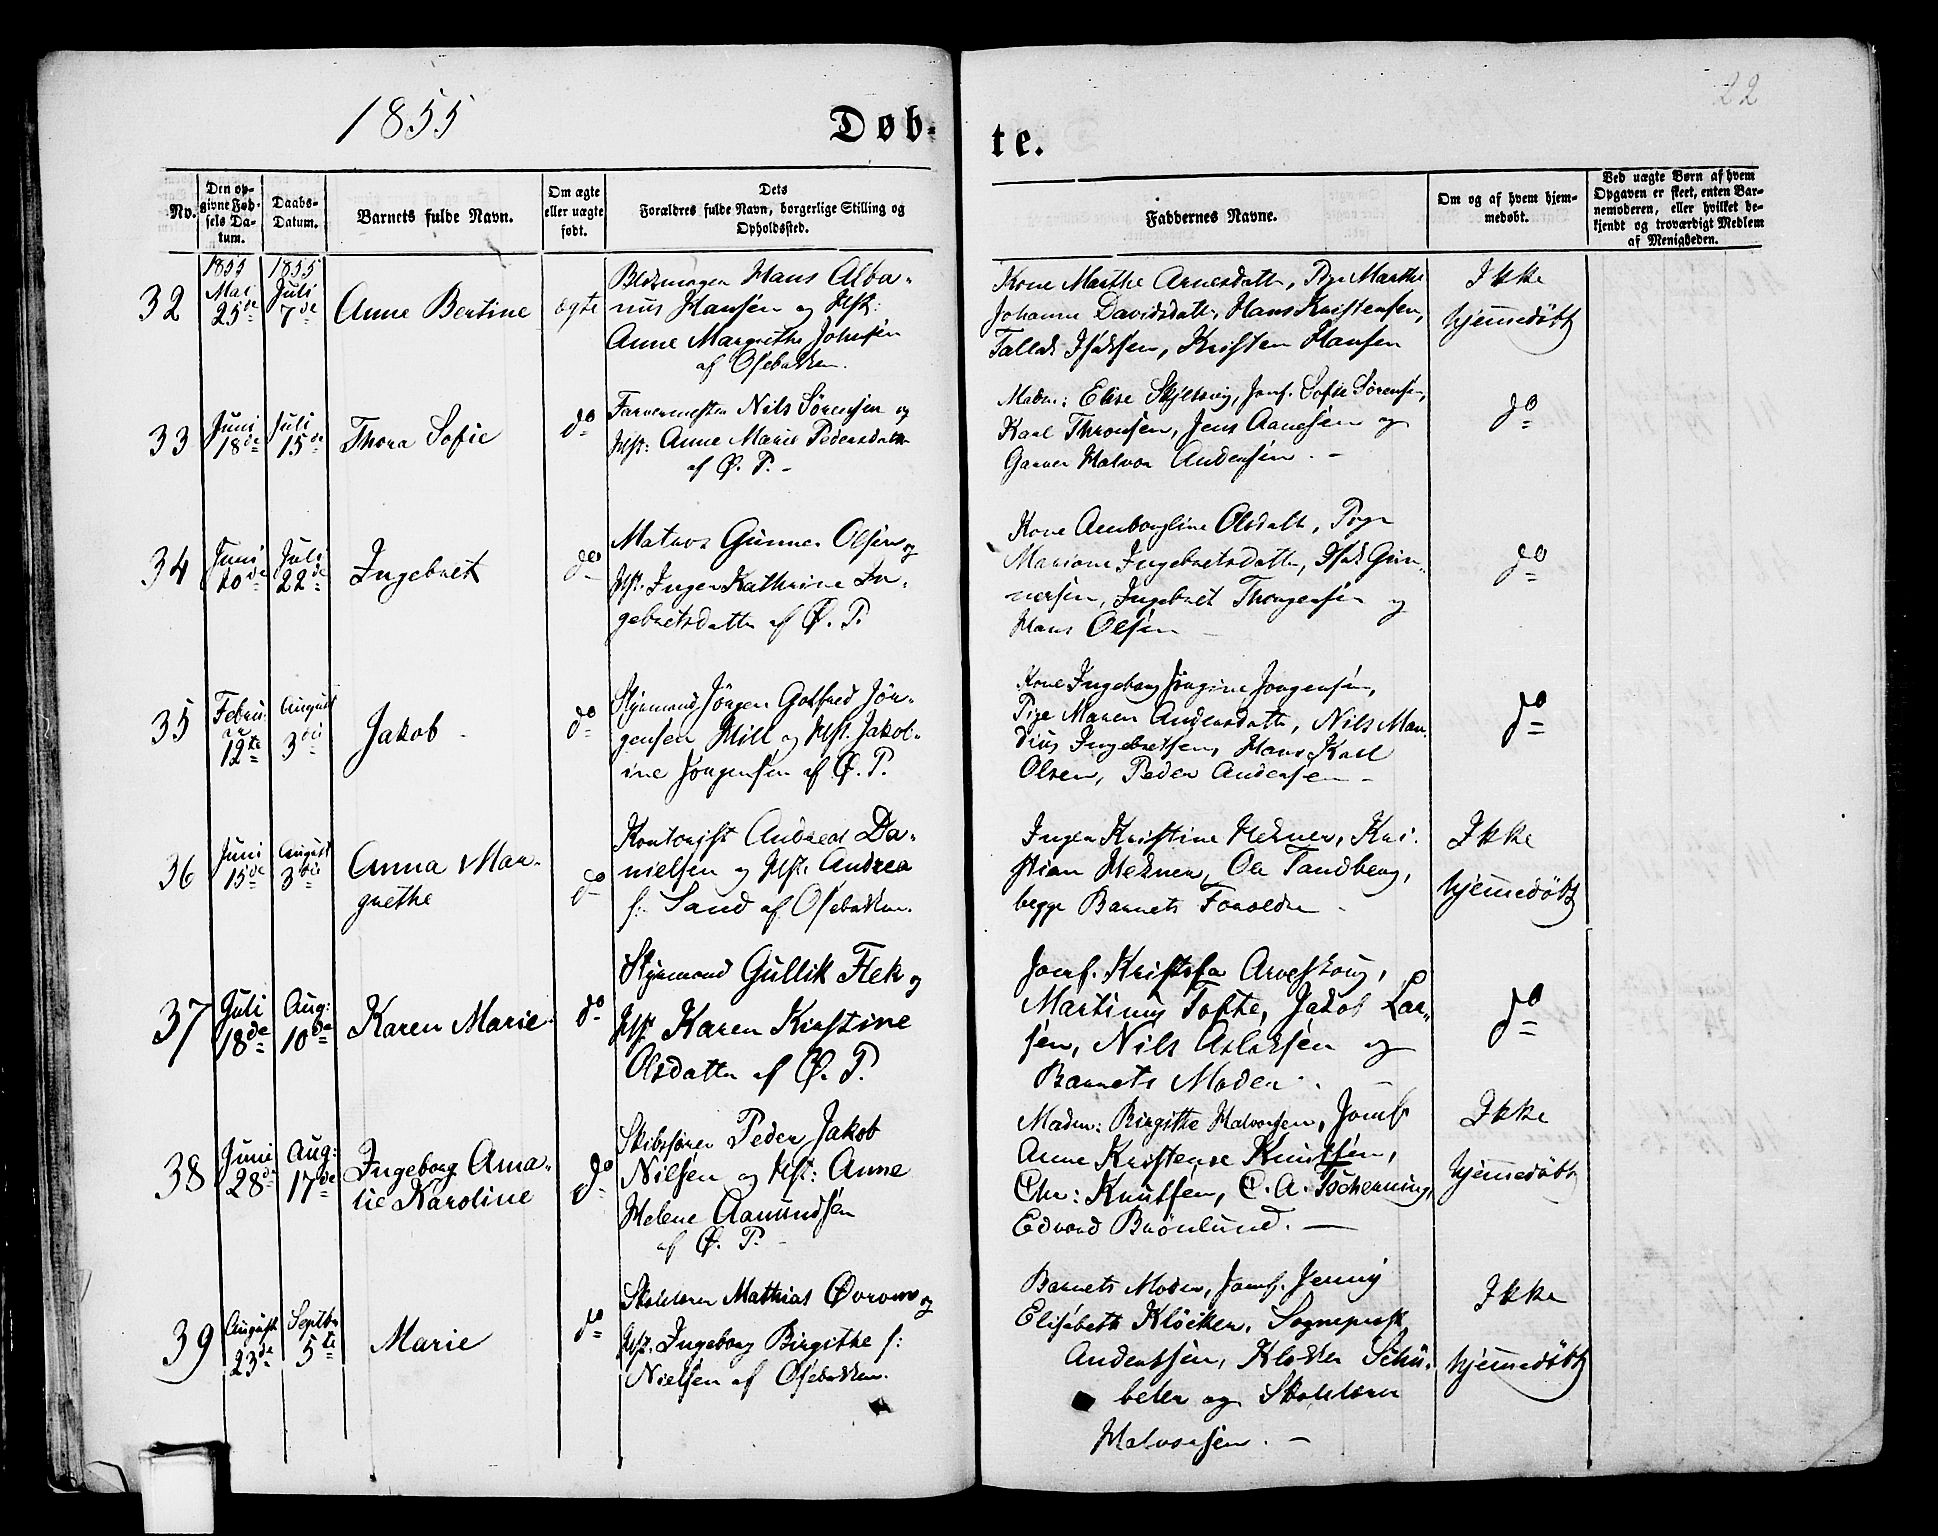 1855
Døb-
te.
22
Nr.
Den op-
givne Fød-
sels Da-
tum.
Daabs-
Datum.
Barnets fulde Navn.
Om ægte
eller uægte
født.
Dets
Forældres fulde Navn, borgerlige Stilling og
Opholdssted.
Faddernes Navne.
Om og af hvem hjem-
medøbt.
Ved uægte Børn af hvem
Opgaven er skeet, enten Bar-
nemoderen, eller hvilket be-
kjendt og troværdigt Medlem
af Menigheden.
32
1855
Mai
25de
1855
Juli
7de
Anne Bertine
ægte
Blokmager Hans Alba-
nus Hansen og Hst:
Anne Margrethe Johnsen
af Osebakken.
Kone Marthe Arnesdatt, Pige Marthe
Johanne Davidsdatt, Hans Kristensen,
Tallak Isaksen, Kristen Hansen
Ikke
hjemmedøbt
33
Juni
18de
Juli
15de
Thora Sofie
do
Farvermester Nils Sørensen og
Hst: Anne Marie Pedersdatter
af Ø. P. -
Madm: Elise Skjelsvig, Jomf. Sofie Sørensen,
Karl Thronsen, Jens Aanesen og
Garver Halvor Andersen. -
do
34
Juni
10de
Juli
22de
Ingebret
do
Matros Gunner Olsen og
Hst: Inger Kathrine In-
gebretsdatter af Ø. P.
Kone Amborgline Olsdatt, Pige
Mariane Ingebretsdatter, Isak Gun-
nersen, Ingebret Thorgersen og
Hans Olsen -
do
35
Febru-
ar
12te
August
3die
Jakob
do
Styrmand Jörgen Gotfred Jör-
gensen Hill og Hst. Jakob-
ine Jörgensen af Ø. P.
Kone Ingeborg Jörgine Jörgensen,
Pige Maren Andersdatter, Nils Mar-
dius Ingebretsen, Hans Karl
Olsen, Peder Andersen -
do
36
Juni
15de
August
3die
Anna Mar-
grethe
do
Kontorist Andreas Da-
nielsen og Hst: Andrea
f: Sand af Osebakken.
Inger Kristine Hekner, Kri-
stian Hekner, Ole Tandberg,
begge Barnets Forældre -
Ikke
hjemmedøbt
37
Juli
18de
Aug:
10de
Karen Marie
do
Styrmand Gullik Flek og
Hst Karen Kirstine
Olsdatter af Ø. P.
Jomf. Kristofa Arveskoug,
Martinus Tofte, Jakob Lar-
sen, Nils Aslaksen og
Barnets Moder. -
do
38
Juni
28de
Aug:
17de
Ingeborg Ama-
lie Karoline
do
Skibsfører Peder Jakob
Nielsen og Hst: Anne
Helene Aamundsen
af Ø. P. -
Madm: Birgitte Halvorsen, Jomf.
Anne Kristense Knutsen,
Chr: Knutsen, C. A. Tscherning,
Edvard Brönlund. -
Ikke
hjemmedøbt
39
August
23de
Septbr
5te
Marie
do
Skolelærer Mathias Övrum og
Hst: Ingeborg Birgithe f:
Nielsen af Osebakken.
Barnets Moder, Jomf. Jenny
Elisabeth Klöcker, Sogneprest
Anderssen, Klokker Schü-
beler og Skolelærer
Halvorsen. -
Ikke
hjemmedøbt